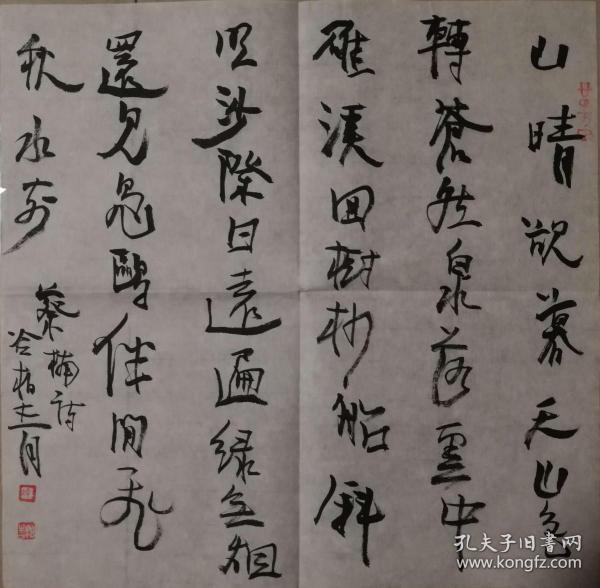 山晴欲暮天山色
轉蒼然泉落雲中
碓溪回樹杪船斜
明沙際日遠遍綠無烟
還見鳧鷗伴閒飛
秋水前
蔡楠詩
孔夫子旧书网
www.kongfz.com